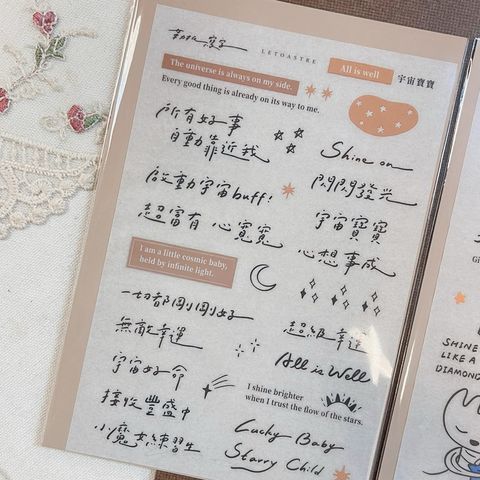 LETOASTRE
All is well
宇宙寶寶
The universe is always on my side.
Every good thing is already on its way to me.
所有好事
自動靠近我
Shine on
閃閃發光
啟動宇宙buff!
宇宙寶寶
超富有 心寬寬
心想事成
I am a little cosmic baby,
held by infinite light.
一切都剛剛好
超級幸運
無敵幸運
All is Well
宇宙好命
I shine brighter
when I trust the flow of the stars.
接收豐盛中
Lucky Baby
小魔女練習生
Starry Child
Gi
SHINE
LIKE A
DIAMOND